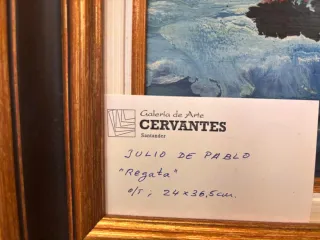 Galería de Arte
CERVANTES
Santander
JULIO DE PABLO
"Regata"
o/t; 24x36,5cm.